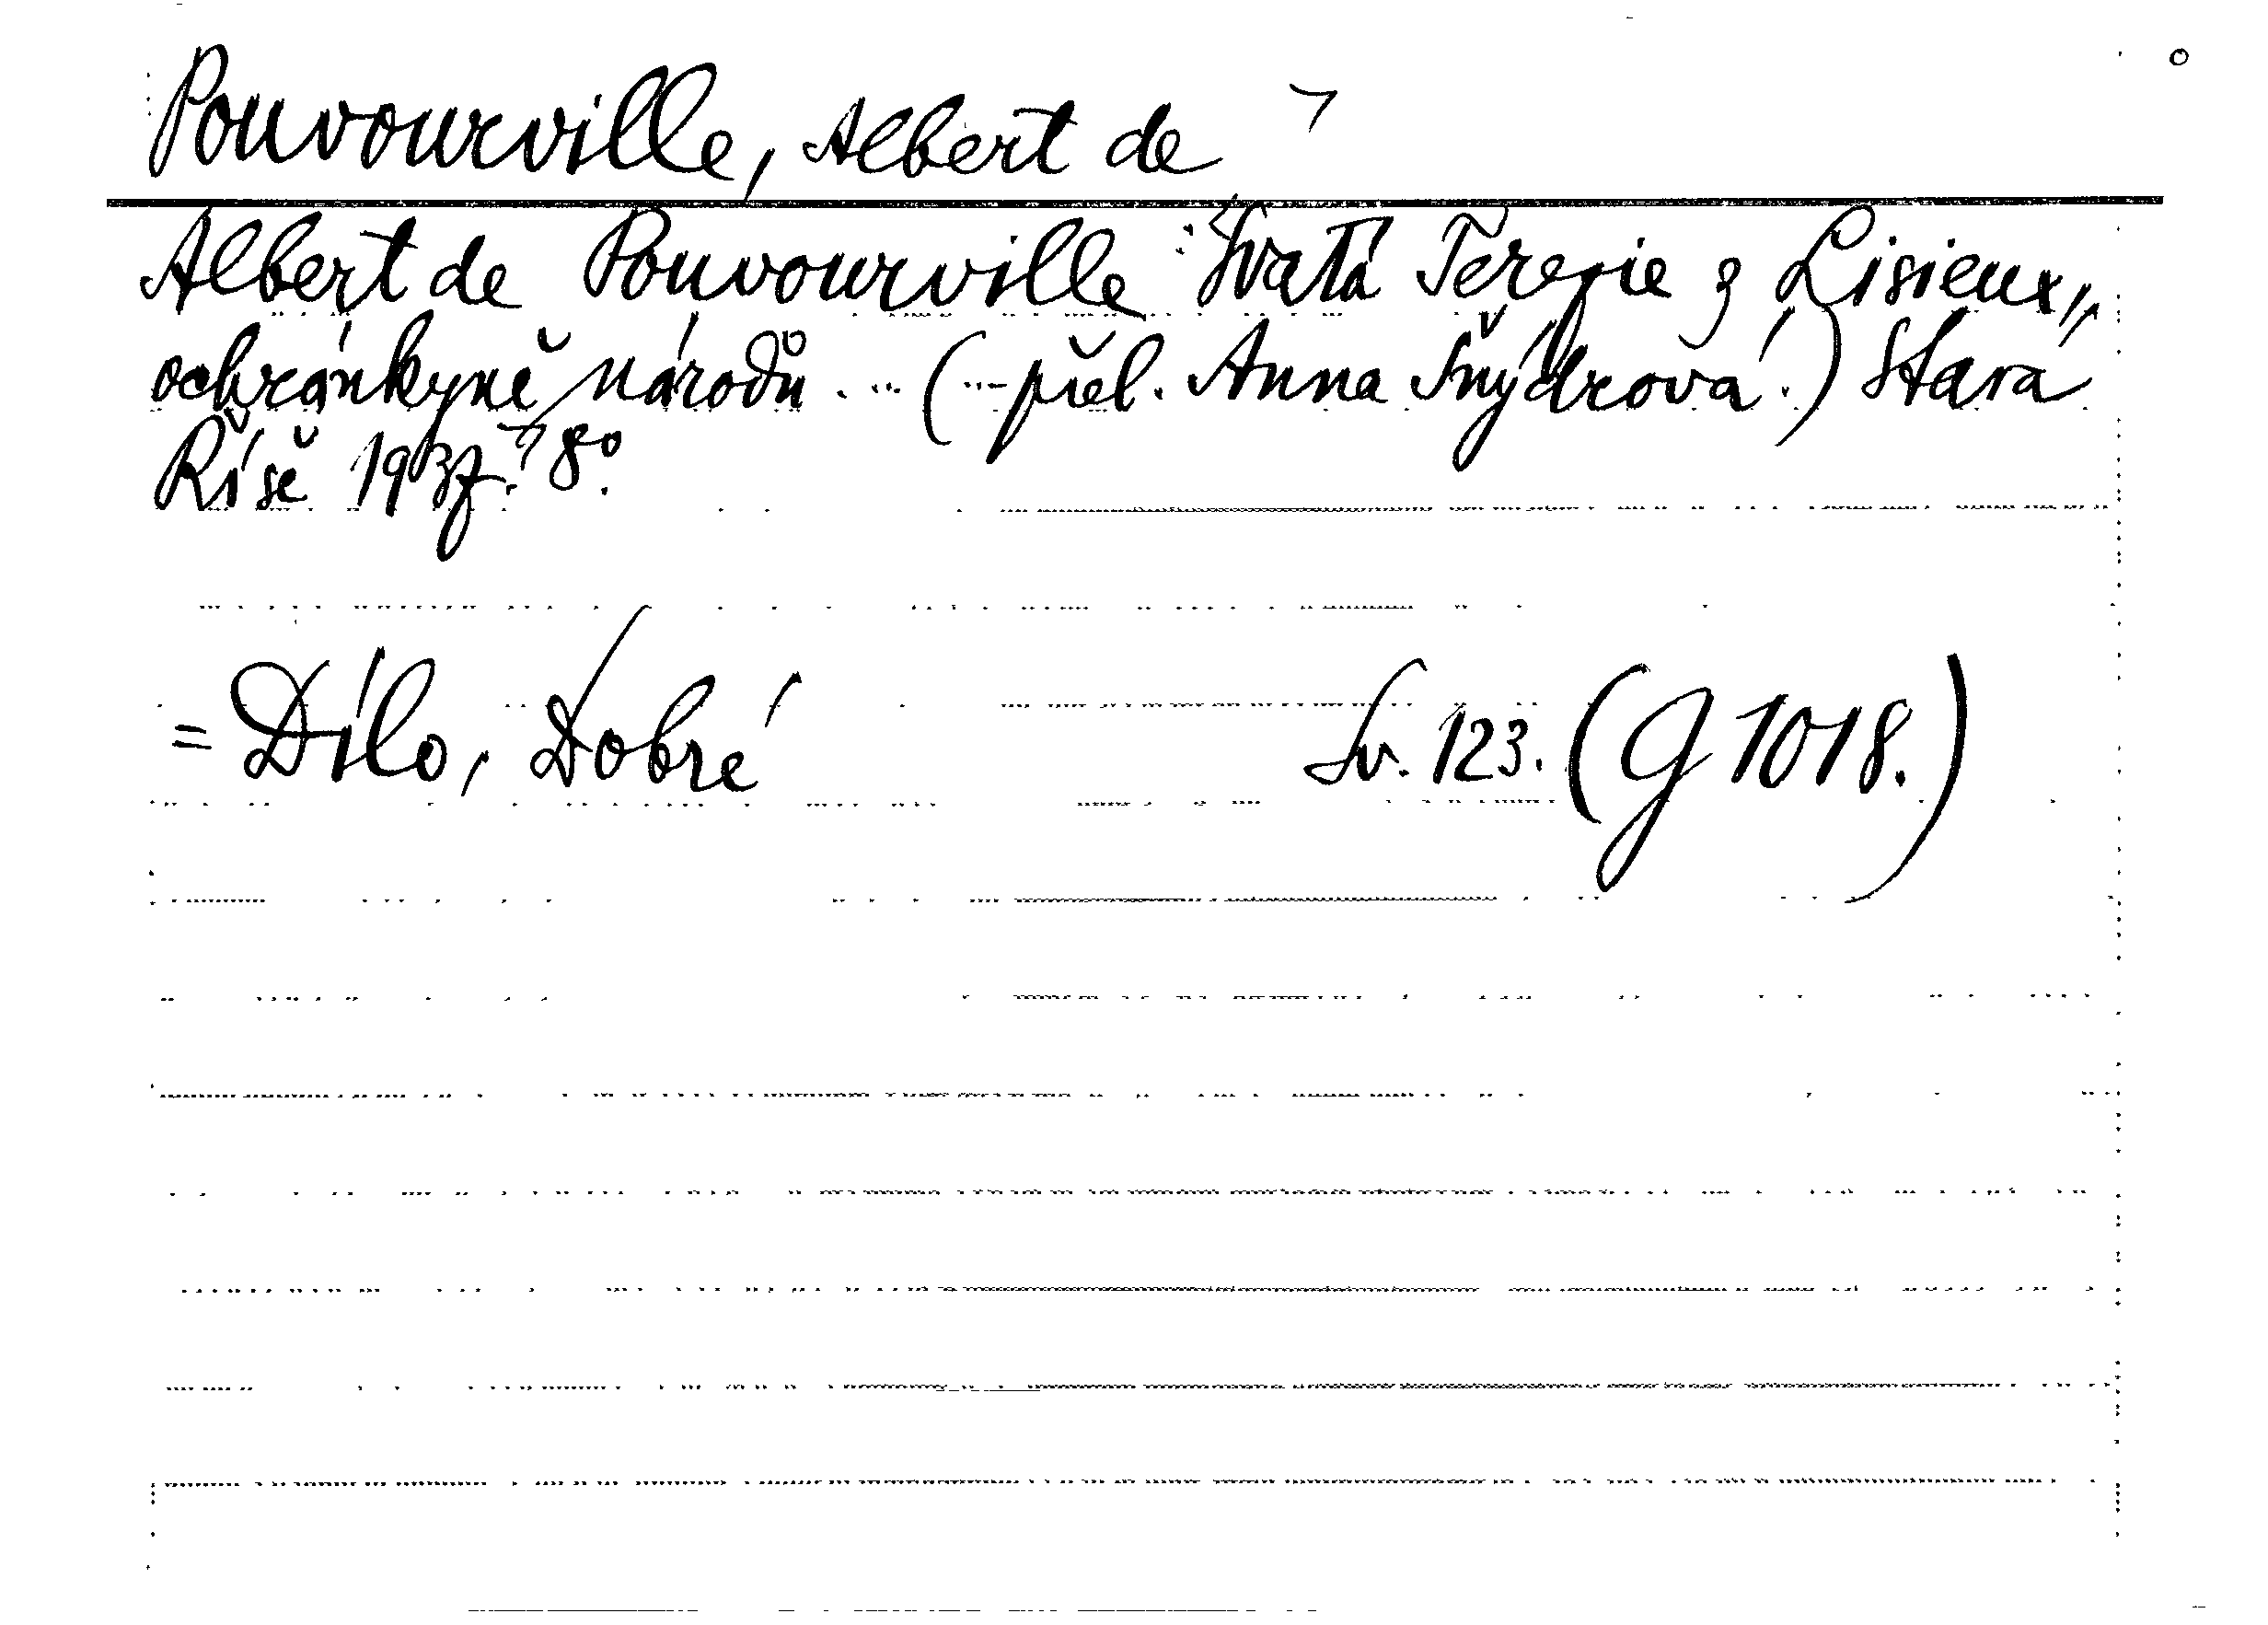 Pouvourville, Albert de
Albert de Pouvourville: Svatá Terezie z Lisieux,
ochránkyně národů ... (... přel. Anna Šnýdrová.) Stará
Říše 1937. 8°.
= Dílo, Dobré Sv. 123. (G 1018.)